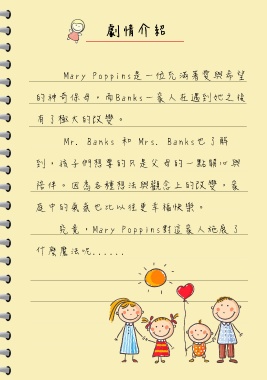 劇情介紹
Mary Poppins是一位充滿著愛與希望
的神奇保母，而Banks一家人在遇到她之後
有了極大的改變。
Mr. Banks 和 Mrs. Banks也了解
到，孩子們想要的只是父母的一點關心與
陪伴。因為各種想法與觀念上的改變，家
庭中的氣氛也比以往更幸福快樂。
究竟，Mary Poppins對這家人施展了
什麼魔法呢......